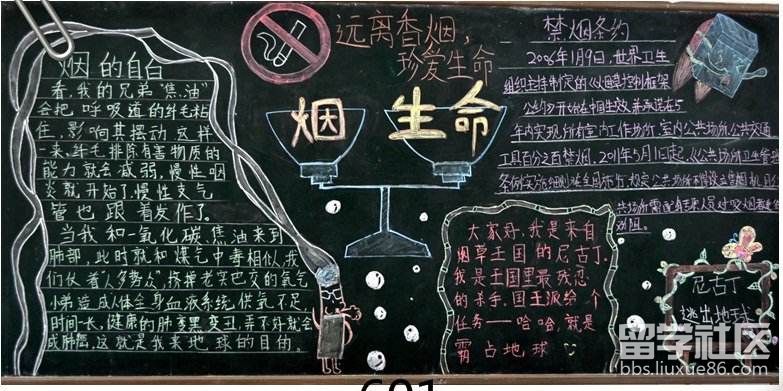 远离香烟，
珍爱生命
烟的自白
看，我的兄弟“焦油”
会把呼吸道的纤毛粘
住，影响其摆动，这样
一来，纤毛排除有害物质的
能力就会减弱，慢性咽
炎就开始了，慢性支气
管也跟着发作了。
当我和一氧化碳、焦油来到
肺部，此时就和煤气中毒相似，我
们仗着“人多势众”，挤掉老实巴交的氧气
小弟，造成人体全身血液系统供氧不足，
时间一长，健康的肺变黑、变丑，弄不好就会
成肺癌，这就是我来地球的目的。
烟 生命
禁烟条约
2006年1月9日，世界卫生
组织主持制定的《烟草控制框架
公约》开始在中国生效，并承诺在5
年内实现所有室内工作场所、室内公共场所、公共交通
工具百分之百禁烟，2011年5月1日起，《公共场所卫生管理
条例实施细则》在全国施行，规定公共场所不得设立售烟机，且公
共场所需配备专职人员对吸烟者进行
劝阻。
大家好，我是来自
烟草王国的尼古丁，
我是王国里最残忍
的杀手，国王派给个
任务——哈哈，就是
霸占地球
尼古丁
逃出地球
601
留学社区
bbs.liuxue86.com